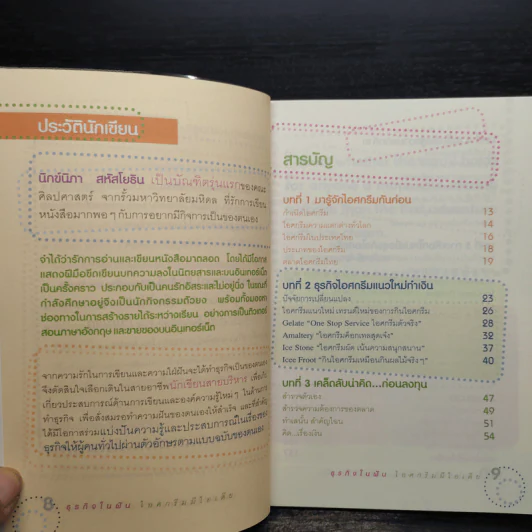 ประวัตินักเขียน
นิกข์นิภา สหัสโยธิน เป็นบัณฑิตรุ่นแรกของคณะ
ศิลปศาสตร์ จากรั้วมหาวิทยาลัยมหิดล ที่รักการเขียน
หนังสือมากพอๆ กับการอยากมีกิจการเป็นของตนเอง
จำได้ว่ารักการอ่านและเขียนหนังสือมาตลอด โดยได้มีโอกาส
แสดงฝีมือขีดเขียนบทความลงในนิตยสารและบนอินเทอร์เน็ต
เป็นครั้งคราว ประกอบกับเป็นคนรักอิสระและไม่อยู่นิ่ง ในขณะที่
กำลังศึกษาอยู่จึงเป็นนักกิจกรรมตัวยง พร้อมทั้งมองหา
ช่องทางในการสร้างรายได้ระหว่างเรียน อย่างการเป็นติวเตอร์
สอนภาษาอังกฤษ และขายของบนอินเทอร์เน็ต
จากความรักในการเขียนและความใฝ่ฝันจะได้ทำธุรกิจเป็นของตนเอง
จึงตัดสินใจเลือกเดินในสายอาชีพนักเขียนสายบริหาร เพื่อเก็บ
เกี่ยวประสบการณ์ด้านการเขียนและองค์ความรู้ใหม่ๆ ในด้านการ
ทำธุรกิจ เพื่อสั่งสมรอทำความฝันของตนเองให้สำเร็จ และที่สำคัญ
ได้มีโอกาสร่วมแบ่งปันความรู้และประสบการณ์ในเรื่องของ
ธุรกิจให้ผู้คนทั่วไปผ่านตัวอักษรตามแบบฉบับของตนเอง
8 ธุรกิจในฝัน ไอศกรีมดีไอเดีย
สารบัญ
บทที่ 1 มารู้จักไอศกรีมกันก่อน
กำเนิดไอศกรีม 13
ไอศกรีมตามแบบต่างทั่วโลก 14
ไอศกรีมในประเทศไทย 16
ประเภทของไอศกรีม 18
ตลาดไอศกรีมไทย 19
บทที่ 2 ธุรกิจไอศกรีมแนวใหม่ทำเงิน
ปัจจัยการเปลี่ยนแปลง 23
ไอศกรีมแนวใหม่ เทรนด์ใหม่ของการกินไอศกรีม 26
Gelate "One Stop Service ไอศกรีมตัวจริง" 28
Amaltery "ไอศกรีมค็อกเทลสูงเด้ง" 32
Ice Stone "ไอศกรีมผัด เน้นความสนุกสนาน" 37
Icee Froot "กินไอศกรีมเหมือนกินผลไม้จริงๆ" 40
บทที่ 3 เคล็ดลับน่าคิด...ก่อนลงทุน
สำรวจตัวเอง 47
สำรวจความต้องการของตลาด 49
ทำเลนั้น สำคัญไฉน 51
คิด...เรื่องเงิน 54
ธุรกิจในฝัน ไอศกรีมดีไอเดีย 9